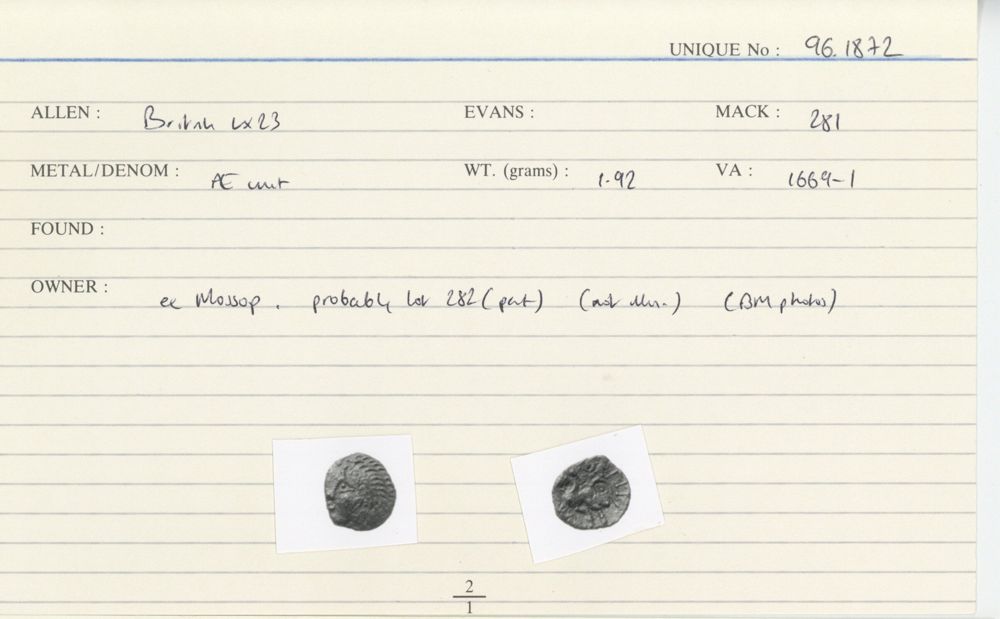 UNIQUE No : 96.1872
ALLEN : British LX23 EVANS : MACK : 281
METAL/DENOM : Æ unit WT. (grams) : 1.92 VA : 1669-1
FOUND :
OWNER : ex Mossop. probably lot 282 (part) (not illus.) (BM photos)
2
1